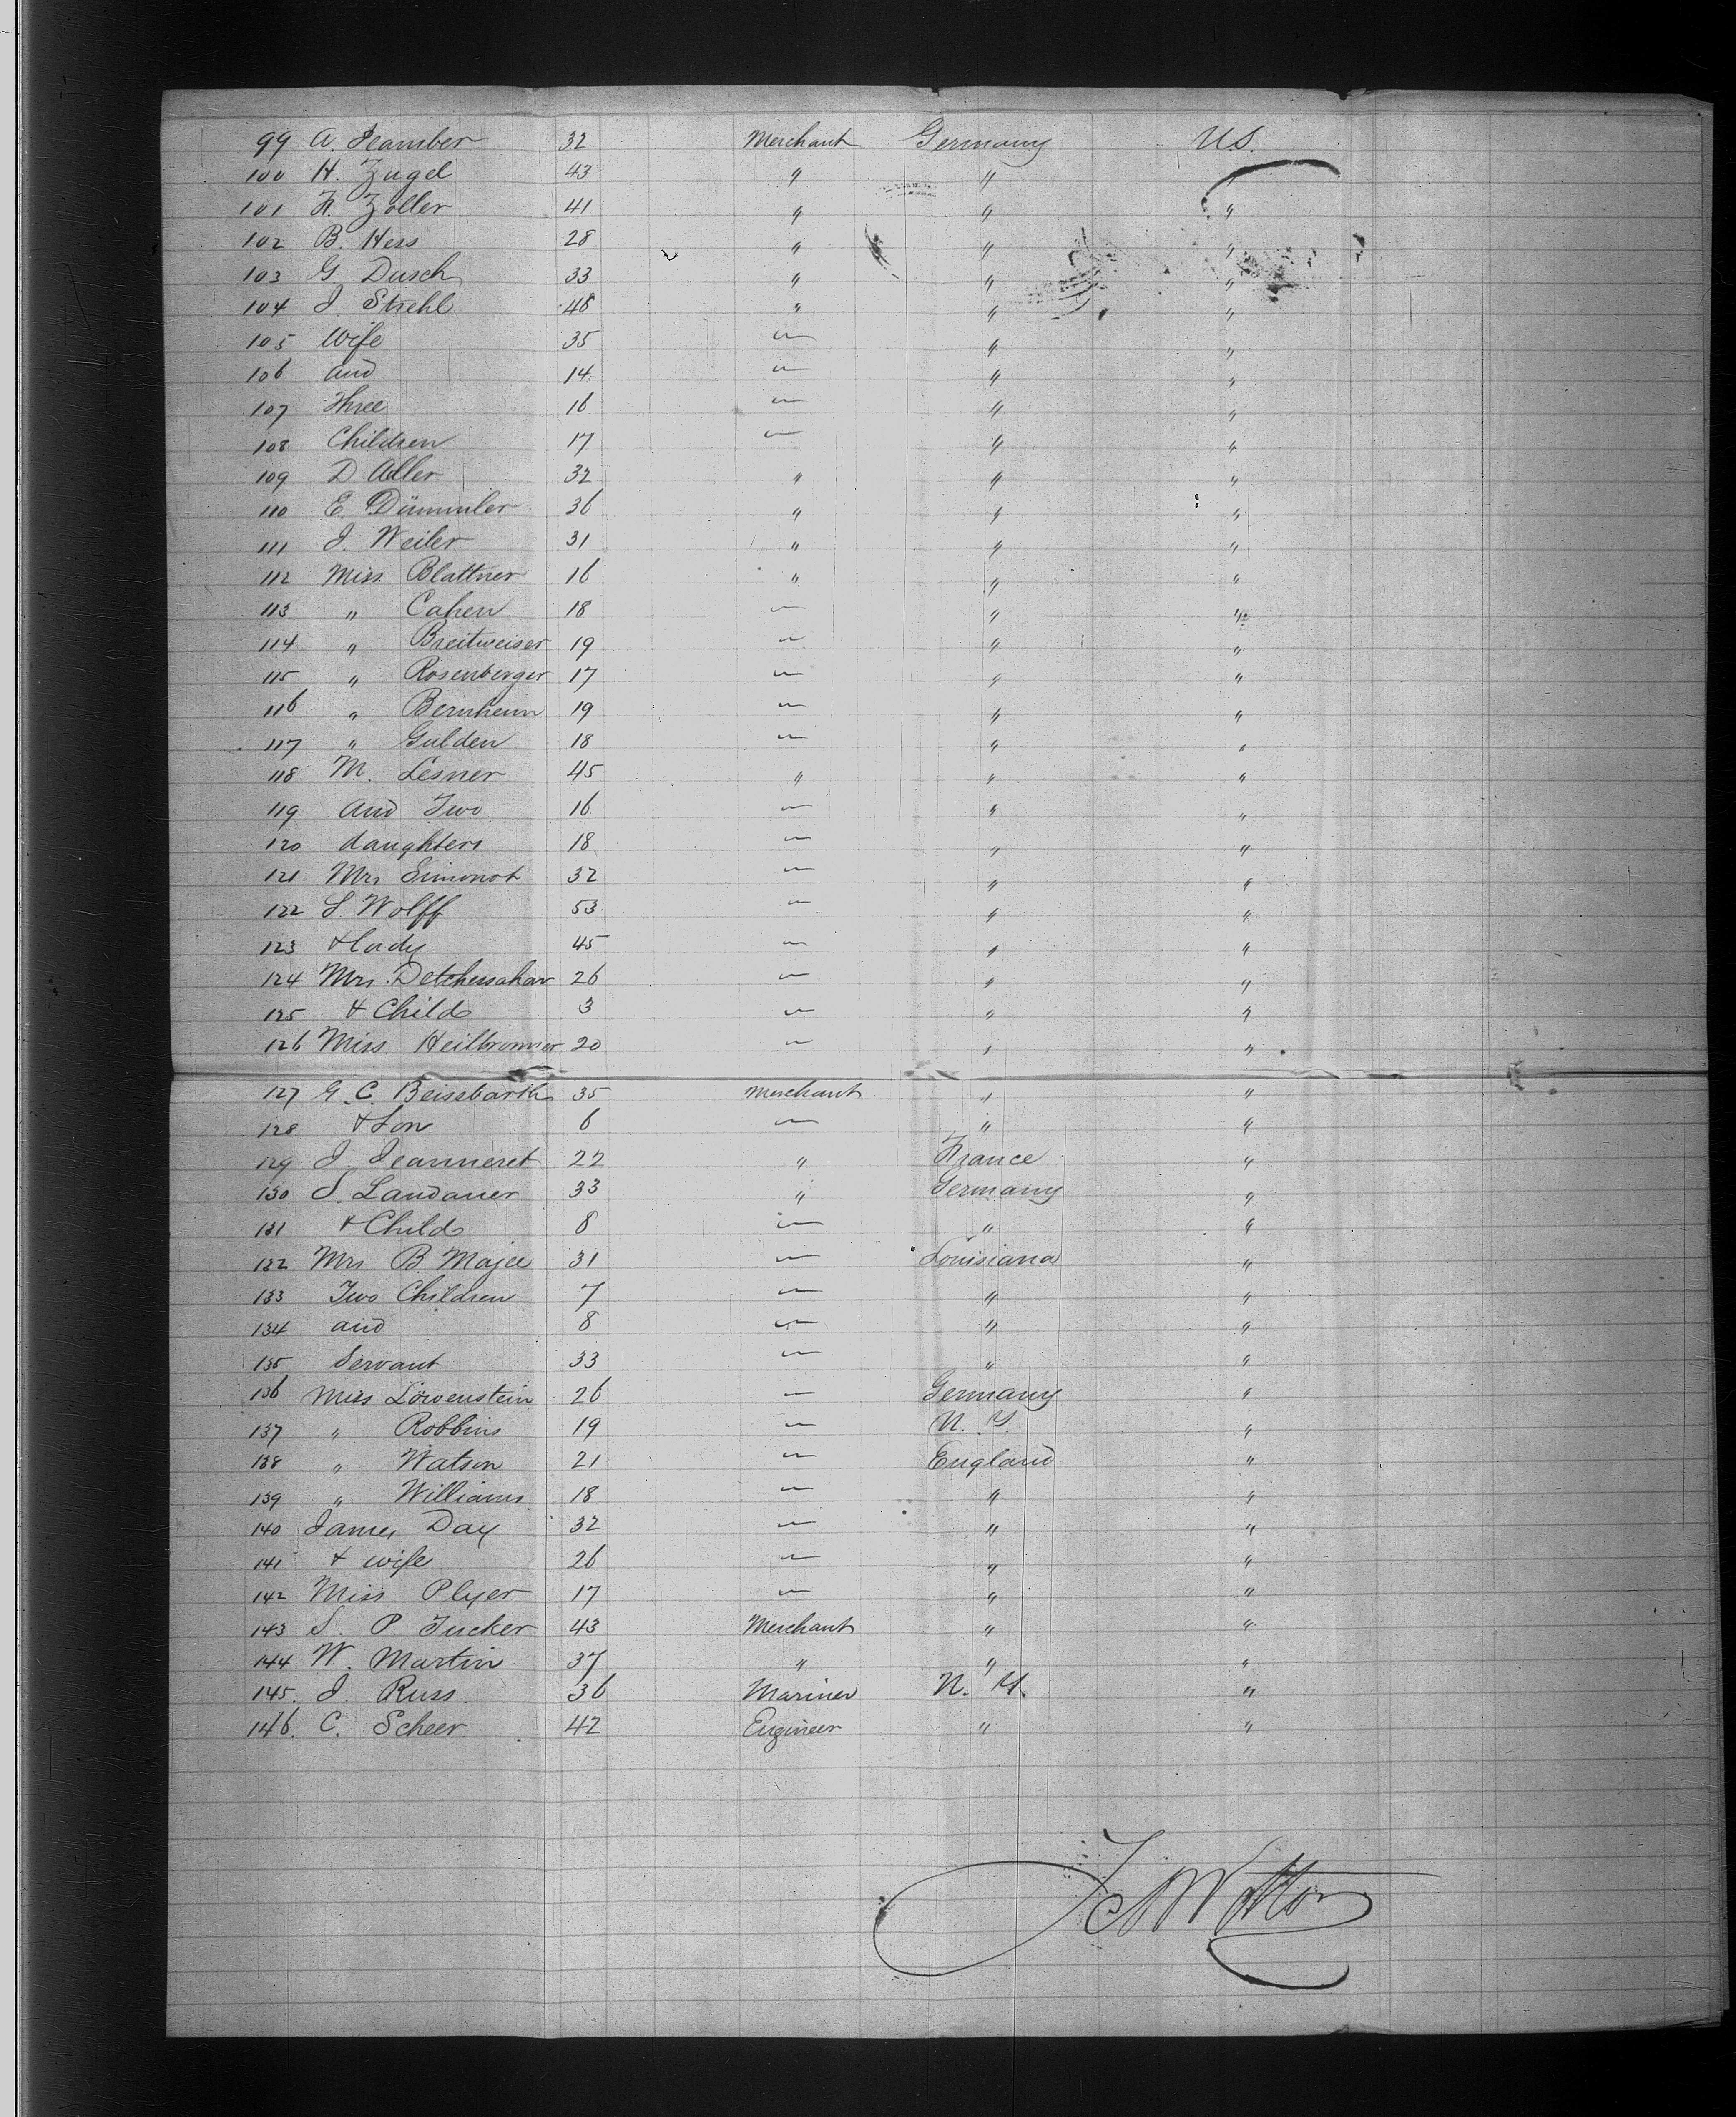 99 A. Scamber 32 Merchant Germany U.S.
100 H. Zugel 43 " " "
101 F. Zoller 41 " " "
102 B. Hess 28 " " "
103 G Dusch 33 " " "
104 J Strehl 48 " " "
105 Wife 35 — " "
106 and 14 — " "
107 Three 16 — " "
108 Children 17 — " "
109 D Adler 32 " " "
110 E. Dümmler 36 " " "
111 J. Weiler 31 " " "
112 Miss Blattner 16 " " "
113 " Cahen 18 — " "
114 " Breitweiser 19 — " "
115 " Rosenberger 17 — " "
116 " Bernheim 19 — " "
117 " Gulden 18 — " "
118 M. Lesner 45 " " "
119 and Two 16 — " "
120 daughters 18 — " "
121 Mrs Simonot 32 — " "
122 S. Wolff 53 — " "
123 & lady 45 — " "
124 Mrs. 26 — " "
125 & Child 3 — " "
126 Miss Heilbronner 20 — " "
127 G. C. Beissbarth 35 Merchant " "
128 & Son 6 — " "
129 J. Jeanneret 22 " France "
130 S. Landauer 33 " Germany "
131 & Child 8 — " "
132 Mrs B. Majee 31 — Louisiana "
133 Two Children 7 — " "
134 and 8 — " "
135 Servant 33 — " "
136 Miss Löwenstein 26 — Germany "
137 " Robbins 19 — N. Y. "
138 " Watson 21 — England "
139 " Williams 18 — " "
140 James Day 32 — " "
141 & wife 26 — " "
142 Miss Plyer 17 — " "
143 S. P. Tucker 43 Merchant " "
144 W. Martin 37 " " "
145. J. Russ 36 Mariner N. Y. "
146. C. Scheer 42 Engineer " "